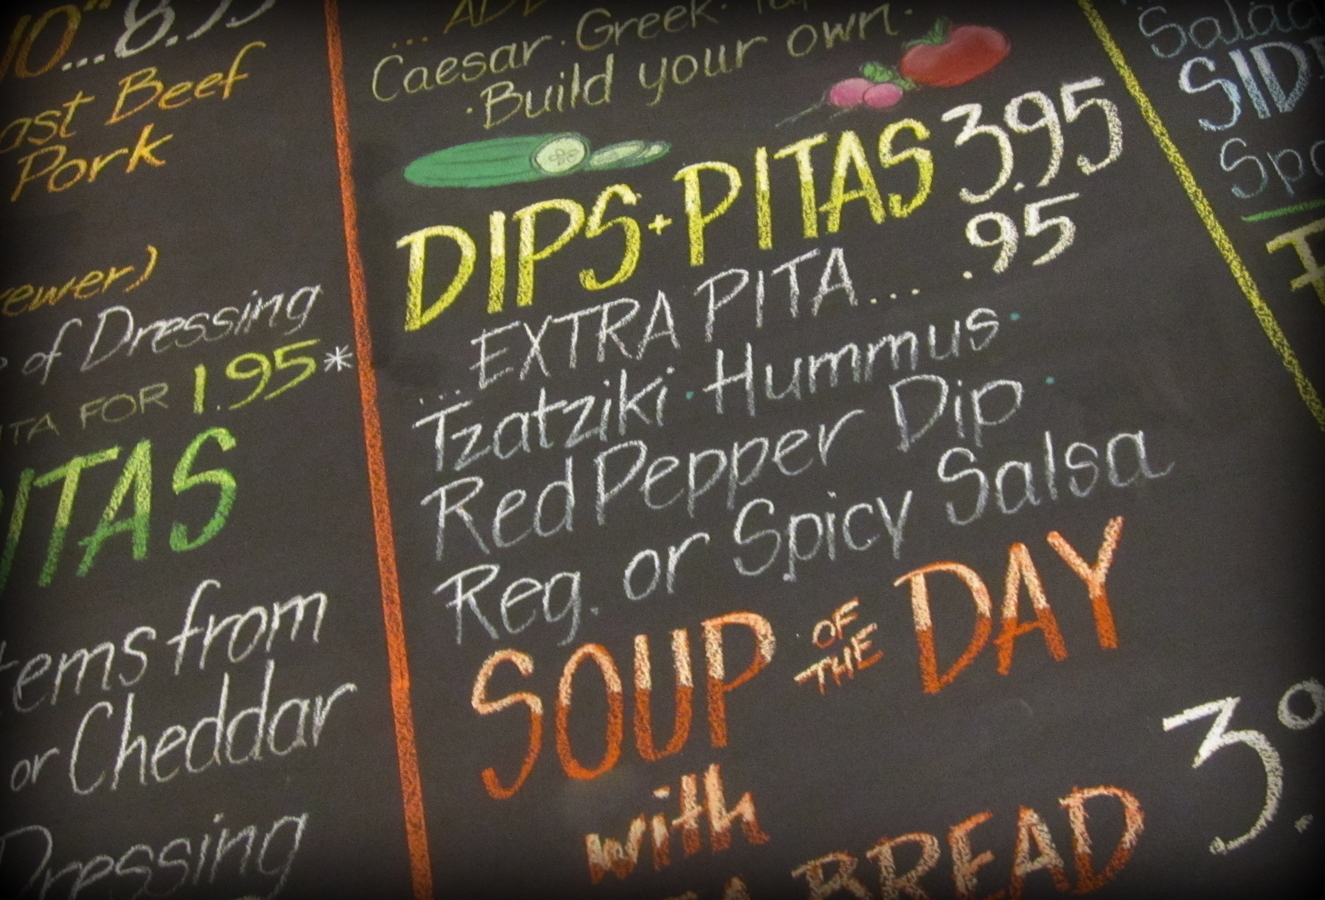 10"...8.95
Beef
Pork
of Dressing
FOR 1.95*
items from
or Cheddar
Dressing
Caesar · Greek ·
· Build your own ·
DIPS + PITAS 3.95
...EXTRA PITA.... .95
Tzatziki · Hummus ·
Red Pepper Dip ·
Reg. or Spicy Salsa
SOUP OF THE DAY
with
BREAD
Salad